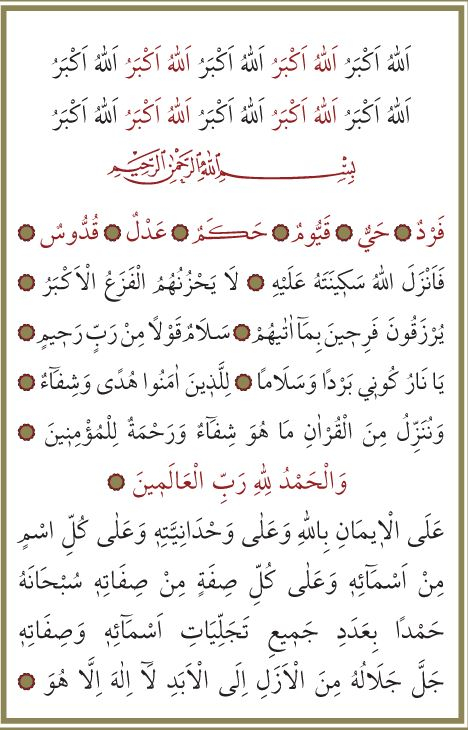 اَللّٰهُ اَكْبَرُ اَللّٰهُ اَكْبَرُ اَللّٰهُ اَكْبَرُ اَللّٰهُ اَكْبَرُ اَللّٰهُ اَكْبَرُ
اَللّٰهُ اَكْبَرُ اَللّٰهُ اَكْبَرُ اَللّٰهُ اَكْبَرُ اَللّٰهُ اَكْبَرُ اَللّٰهُ اَكْبَرُ
بِسْمِ اللّٰهِ الرَّحْمٰنِ الرَّحِيمِ
فَرْدٌ ۞ حَيٌّ ۞ قَيُّومٌ ۞ حَكَمٌ ۞ عَدْلٌ ۞ قُدُّوسٌ ۞
فَاَنْزَلَ اللّٰهُ سَكِينَتَهُ عَلَيْهِ ۞ لَا يَحْزُنُهُمُ الْفَزَعُ الْاَكْبَرُ ۞
يُرْزَقُونَ فَرِحِينَ بِمَٓا اٰتٰيهُمْ ۞ سَلَامٌ قَوْلًا مِنْ رَبٍّ رَحِيمٍ ۞
يَا نَارُ كُونِي بَرْدًا وَسَلَامًا ۞ لِلَّذِينَ اٰمَنُوا هُدًى وَشِفَٓاءٌ ۞
وَنُنَزِّلُ مِنَ الْقُرْاٰنِ مَا هُوَ شِفَٓاءٌ وَرَحْمَةٌ لِلْمُؤْمِنِينَ ۞
وَالْحَمْدُ لِلّٰهِ رَبِّ الْعَالَمِينَ ۞
عَلَى الْاِيمَانِ بِاللّٰهِ وَعَلٰى وَحْدَانِيَّتِهِ وَعَلٰى كُلِّ اسْمٍ
مِنْ اَسْمَٓائِهِ وَعَلٰى كُلِّ صِفَةٍ مِنْ صِفَاتِهِ سُبْحَانَهُ
حَمْدًا بِعَدَدِ جَمِيعِ تَجَلِّيَاتِ اَسْمَٓائِهِ وَصِفَاتِهِ
جَلَّ جَلَالُهُ مِنَ الْاَزَلِ اِلَى الْاَبَدِ لَٓا اِلٰهَ اِلَّا هُوَ ۞